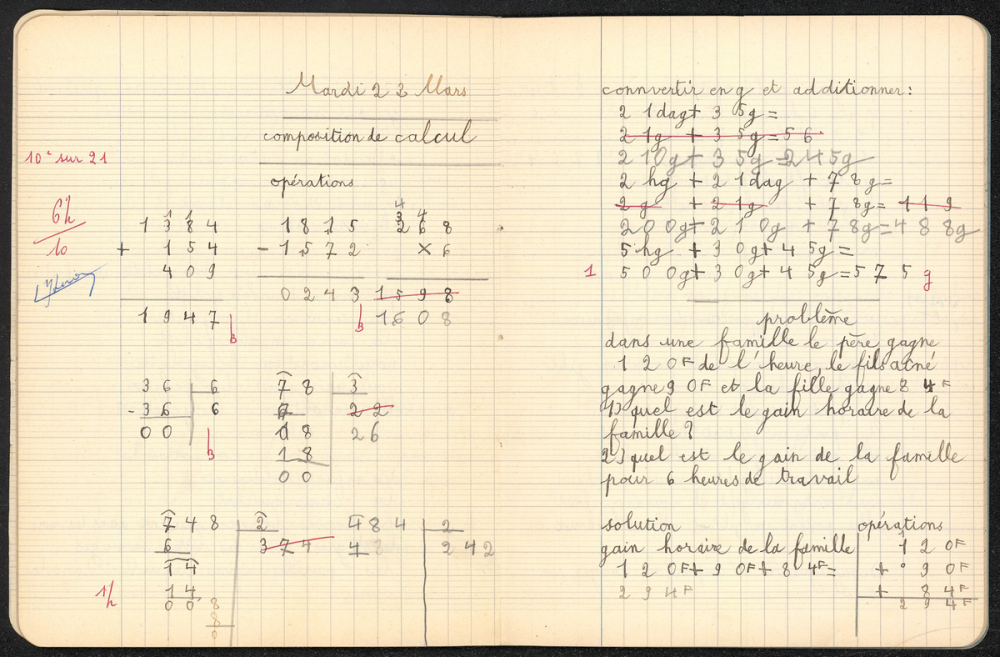 Mardi 23 Mars
composition de calcul
10e sur 21
opérations
6½
10
1 3 8 4
+ 1 5 4
4 0 9
1 9 4 7
b
1 8 1 5
- 1 5 7 2
0 2 4 3
b
4
3 4
2 6 8
× 6
1 5 9 8
1 6 0 8
3 6 6
- 3 6 6
0 0
b
7 8 3
6 2 2
1 8 2 6
1 8
0 0
7 4 8 2
6 3 7 4
1 4
1 4
0 0 8
8
0
1/2
4 8 4 2
4 8 2 4 2
connvertir en g et additionner:
2 1dag+ 3 5g=
2 1g + 3 5g=5 6
2 10g+ 3 5g=245g
2 hg + 2 1dag + 7 8g=
2 g + 2 1g + 7 8g= 1 1 9
2 0 0g+ 2 1 0g + 7 8g=4 8 8g
5 hg + 3 0g+ 4 5g=
1 5 0 0g+ 3 0g+ 4 5g=5 7 5 g
problème
dans une famille le père gagne
1 2 0F de l'heure, le fils ainé
gagne 9 0F et la fille gagne 8 4F
1) quel est le gain horaire de la
famille ?
2) quel est le gain de la famille
pour 6 heures de travail
solution
gain horaire de la famille
1 2 0F+ 9 0F+ 8 4F=
2 9 4F
opérations
1
1 2 0F
+ 9 0F
+ 8 4F
2 9 4F